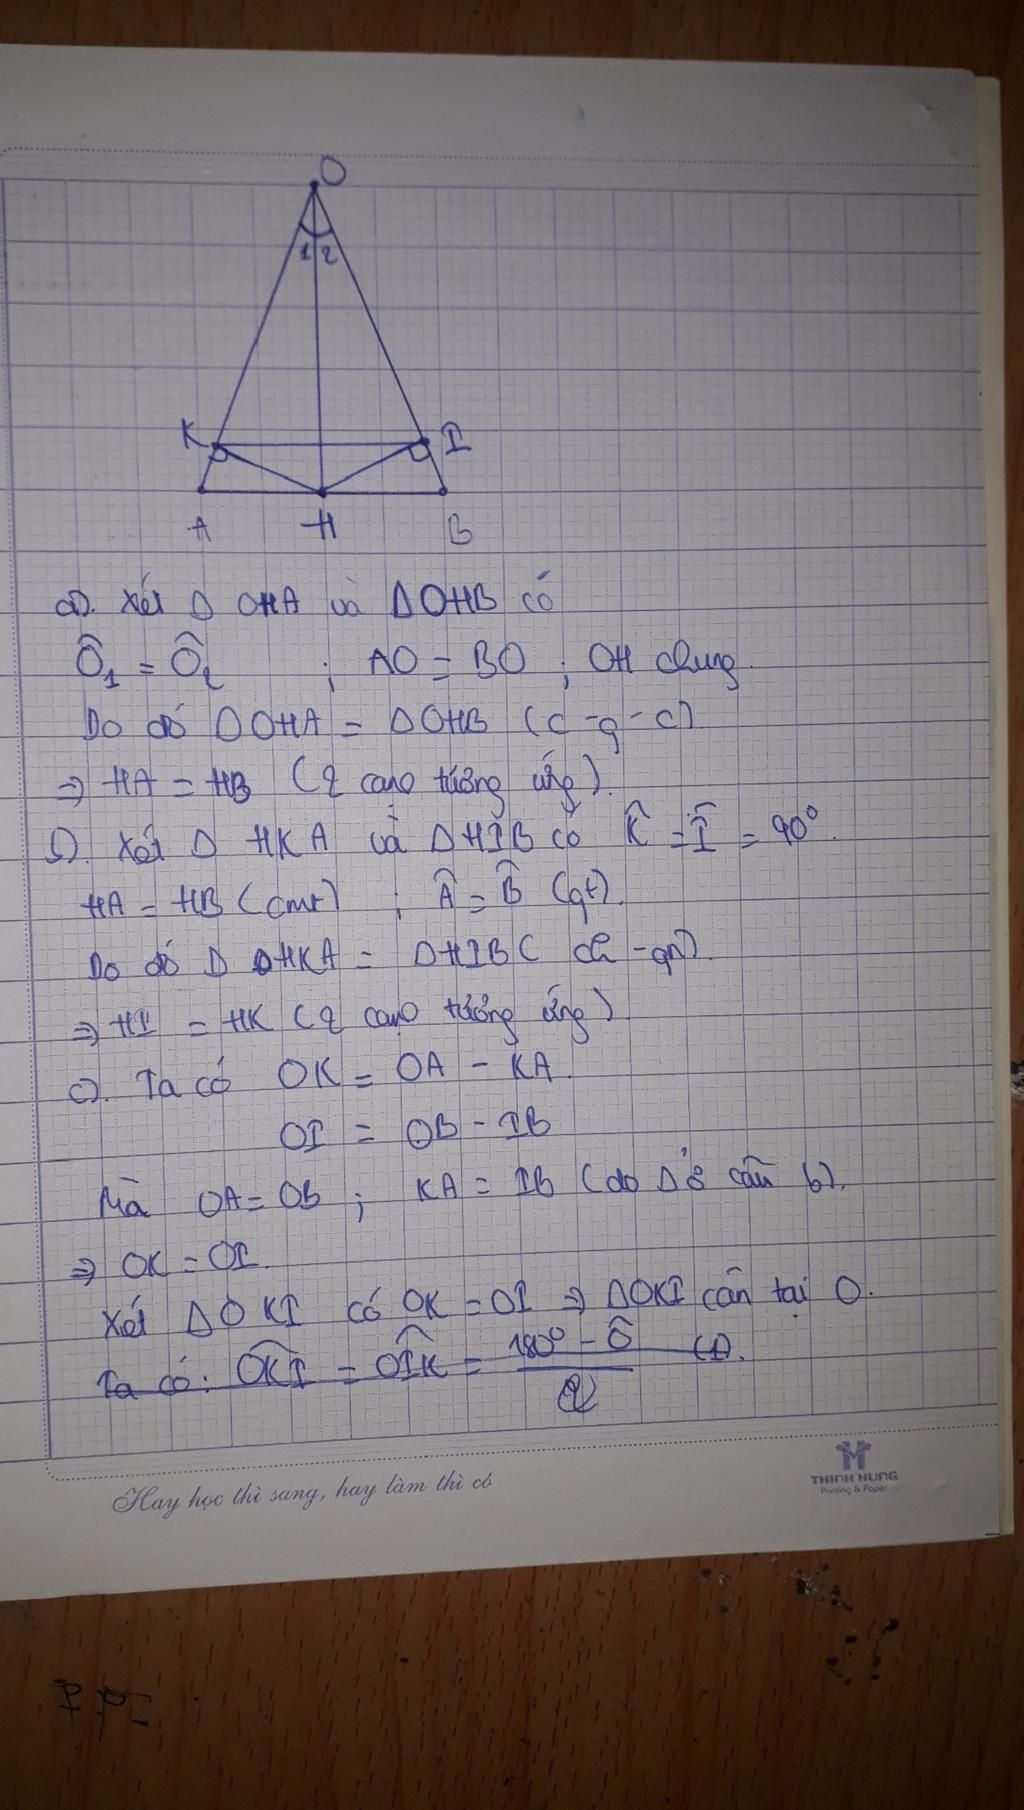 O
1 2
K I
A H B
a). Xét Δ OHA và ΔOHB có
Ô₁ = Ô₂ ; AO = BO ; OH chung.
Do đó ΔOHA = ΔOHB (c-g-c)
⇒ HA = HB (2 cạnh tương ứng).
b). Xét Δ HKA và ΔHIB có K̂ = Î = 90°.
HA = HB (cmt) ; Â = B̂ (gt).
Do đó Δ HKA = ΔHIB ( ch - gn)
⇒ HI = HK (2 cạnh tương ứng)
c). Ta có OK = OA - KA
OI = OB - IB
Mà OA = OB ; KA = IB (do Δ ở câu b).
⇒ OK = OI.
Xét ΔOKI có OK = OI ⇒ ΔOKI cân tại O.
Ta có: OKI = OIK = 180° - Ô / 2 (1).
Hay học thì sang, hay làm thì có
THINH HUNG
Printing & Paper